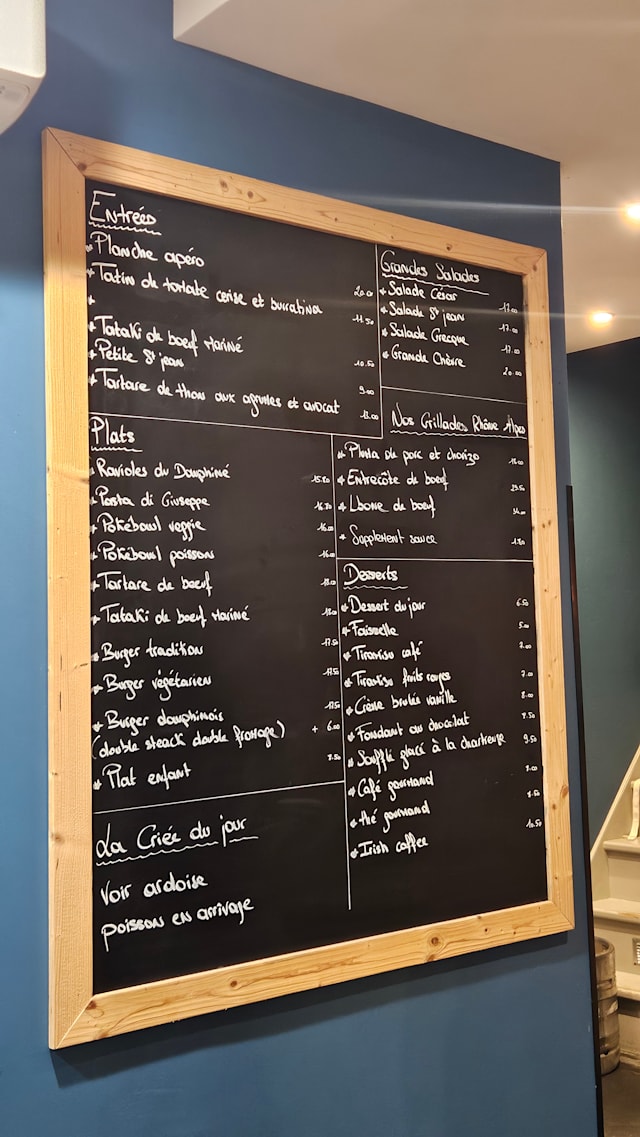 Entrées
* Planche apéro 20.00
* Tatin de tomate cerise et burratina 11.50
*
* Tataki de boeuf Mariné 10.50
* Petite St jean 9.00
* Tartare de thon aux agrumes et avocat 13.00
Grandes Salades
* Salade César 17.00
* Salade St jean 17.00
* Salade Grecque 17.00
* Grande Chèvre 20.00
Plats
* Ravioles du Dauphiné
* Pasta di Giuseppe
* Pokébowl veggie 16.00
* Pokébowl poisson 16.00
* Tartare de boeuf
* Tataki de boeuf Mariné
* Burger tradition 17.50
* Burger végétarien 17.50
* Burger dauphinois
(double steack double fromage) + 6.00
* Plat enfant
Nos Grillades Rhône Alpes
* Pluma de porc et chorizo
* Entrecôte de boeuf
* Lbone de boeuf
* Supplément sauce
Desserts
* Dessert du jour 6.50
* Faisselle 5.00
* Tiramisu café 7.00
* Tiramisu fruits rouges 7.00
* Crème brulée vanille 8.00
* Fondant au chocolat 7.50
* Soufflé glacé à la chartreuse 9.50
* Café gourmand
* thé gourmand
* Irish coffee 10.50
La Criée du jour
Voir ardoise
poisson en arrivage